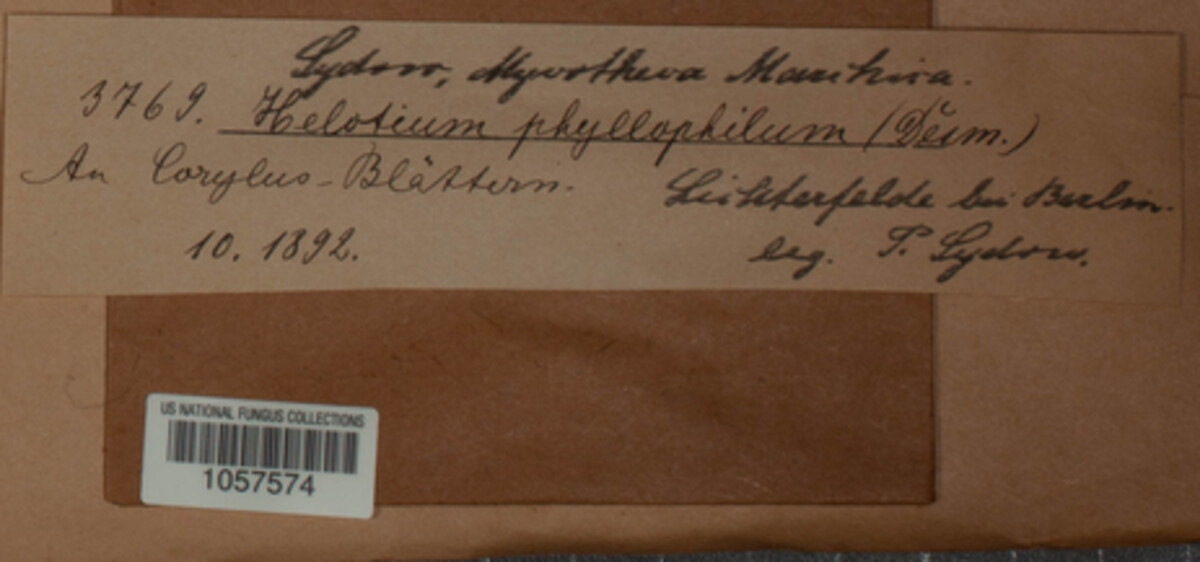 Sydow, Mycotheca Marchica.
3769. Helotium phyllophilum (Desm.)
An Corylus-Blättern.
Lichterfelde bei Berlin.
10. 1892.
leg. P. Sydow.
US NATIONAL FUNGUS COLLECTIONS
1057574